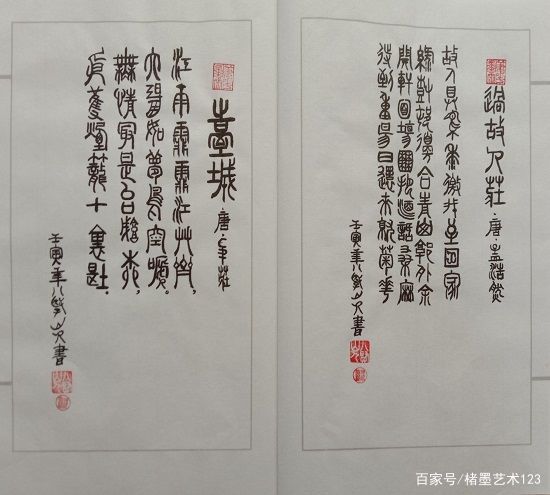 過故人莊·唐·孟浩然
故人具雞黍邀我至田家
綠樹村邊合青山郭外斜
開軒面場圃把酒話桑麻
待到重陽日還來就菊花
壬寅年 書
臺城·唐·韋莊
江雨霏霏江艸齊，
六朝如夢鳥空啼。
無情最是台城柳，
依舊煙籠十里堤。
壬寅年 書
百家号/楮墨艺术123